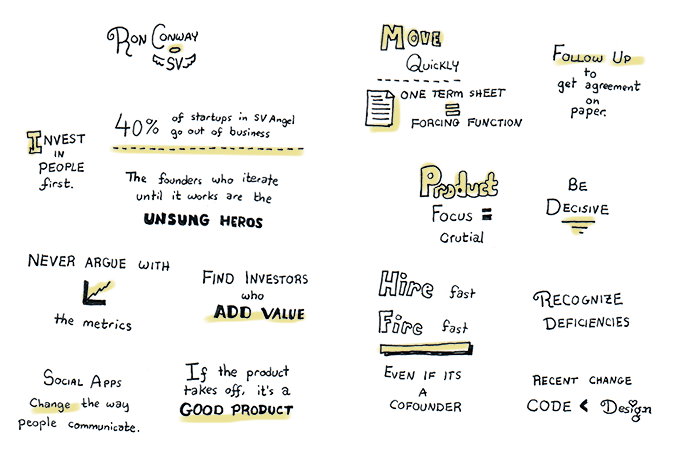 Ron Conway
SV
INVEST
IN
PEOPLE
first.
40% of startups in SV Angel
go out of business
The founders who iterate
until it works are the
UNSUNG HEROS
NEVER ARGUE WITH
the metrics
FIND INVESTORS
who
ADD VALUE
SOCIAL APPS
Change the way
people communicate.
If the product
takes off, it's a
GOOD PRODUCT
MOVE
QUICKLY
ONE TERM SHEET
=
FORCING FUNCTION
FOLLOW UP
to
get agreement
on
paper.
Product
Focus =
Crutial
BE
DECISIVE
Hire fast
Fire fast
EVEN IF ITS
A
COFOUNDER
RECOGNIZE
DEFICIENCIES
RECENT CHANGE
CODE < Design